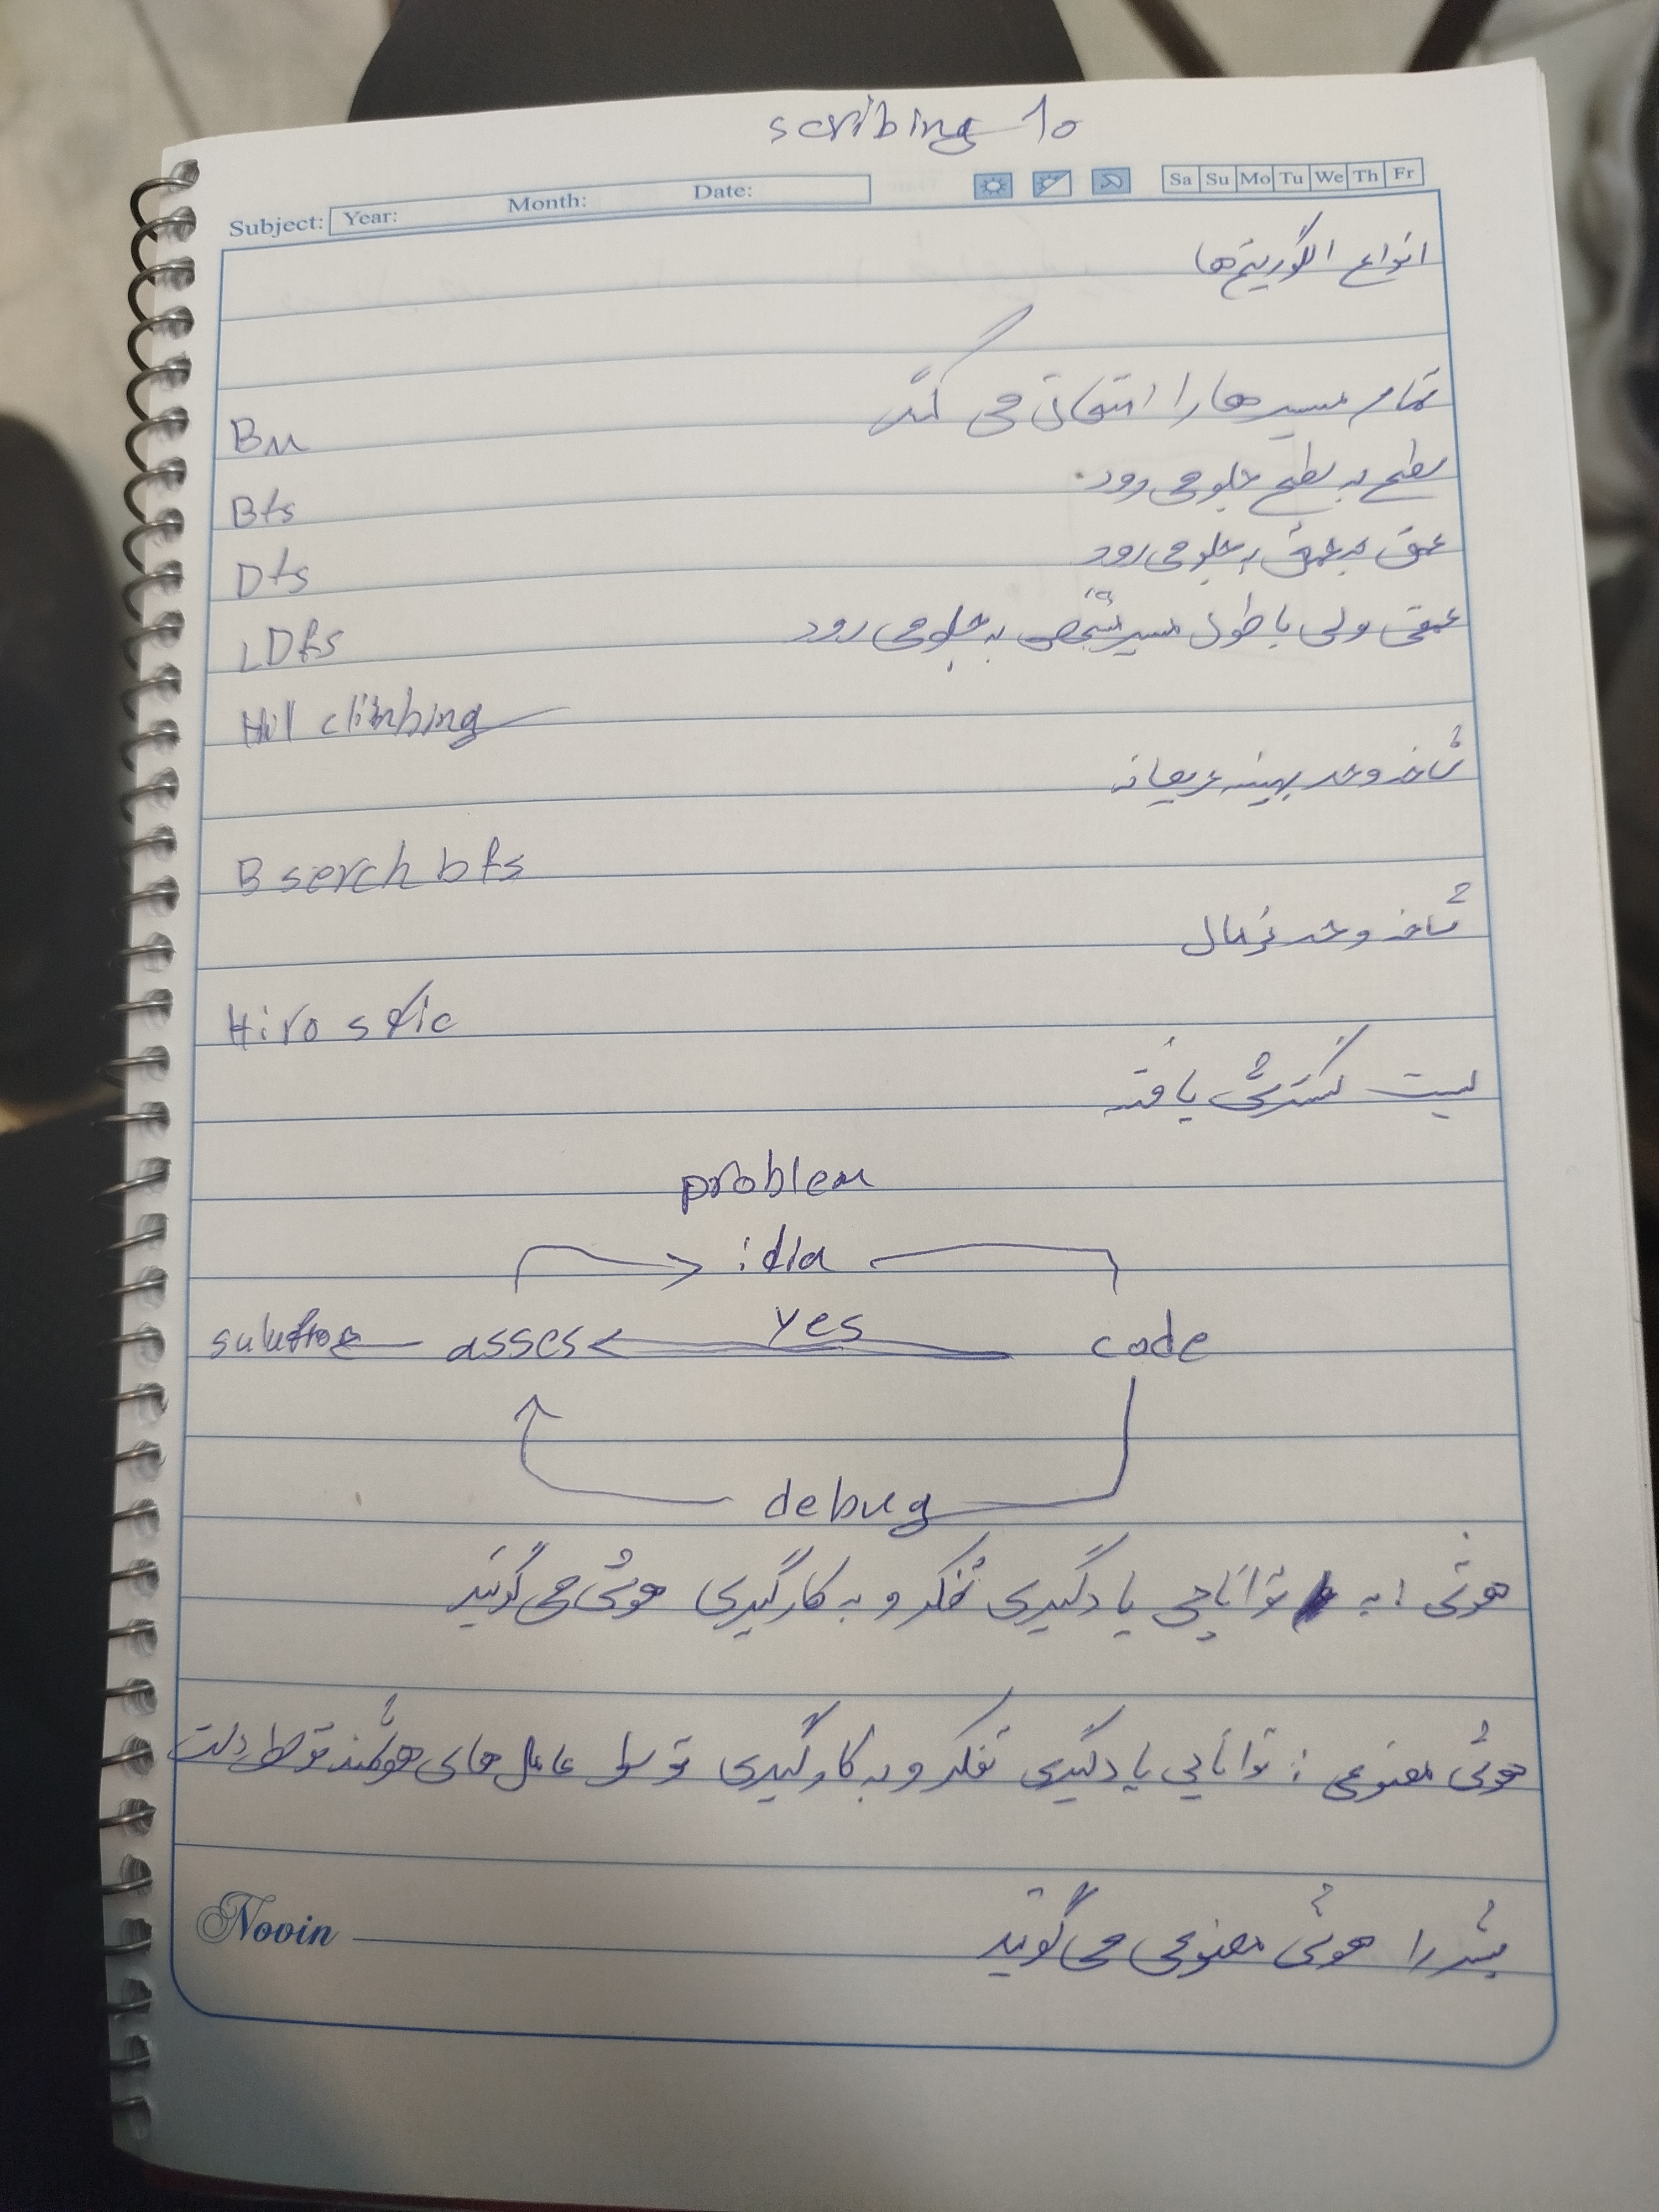 scribing 10
Subject: Year: Month: Date: Sa Su Mo Tu We Th Fr
انواع الگوریتم‌ها
تمام مسیرها را امتحان می کند
Bm
سطح به سطح جلو می رود.
Bfs
عمق به عمق به جلو می رود
Dfs
عمقی ولی با طول مسیر مشخص به جلو می رود
LDfs
Hill climbing
شاخه و حد بهینه حریصانه
B serch bfs
شاخه و حد نرمال
Hiro stic
لیست گسترش یافته
problem
idea
asses yes code
debug
هوش : به توانایی یادگیری تفکر و به کارگیری هوش می گویند
هوش مصنوعی : توانایی یادگیری تفکر و به کارگیری توسط عامل های هوشمند توسط دست
بشر را هوش مصنوعی می گویند
Novin